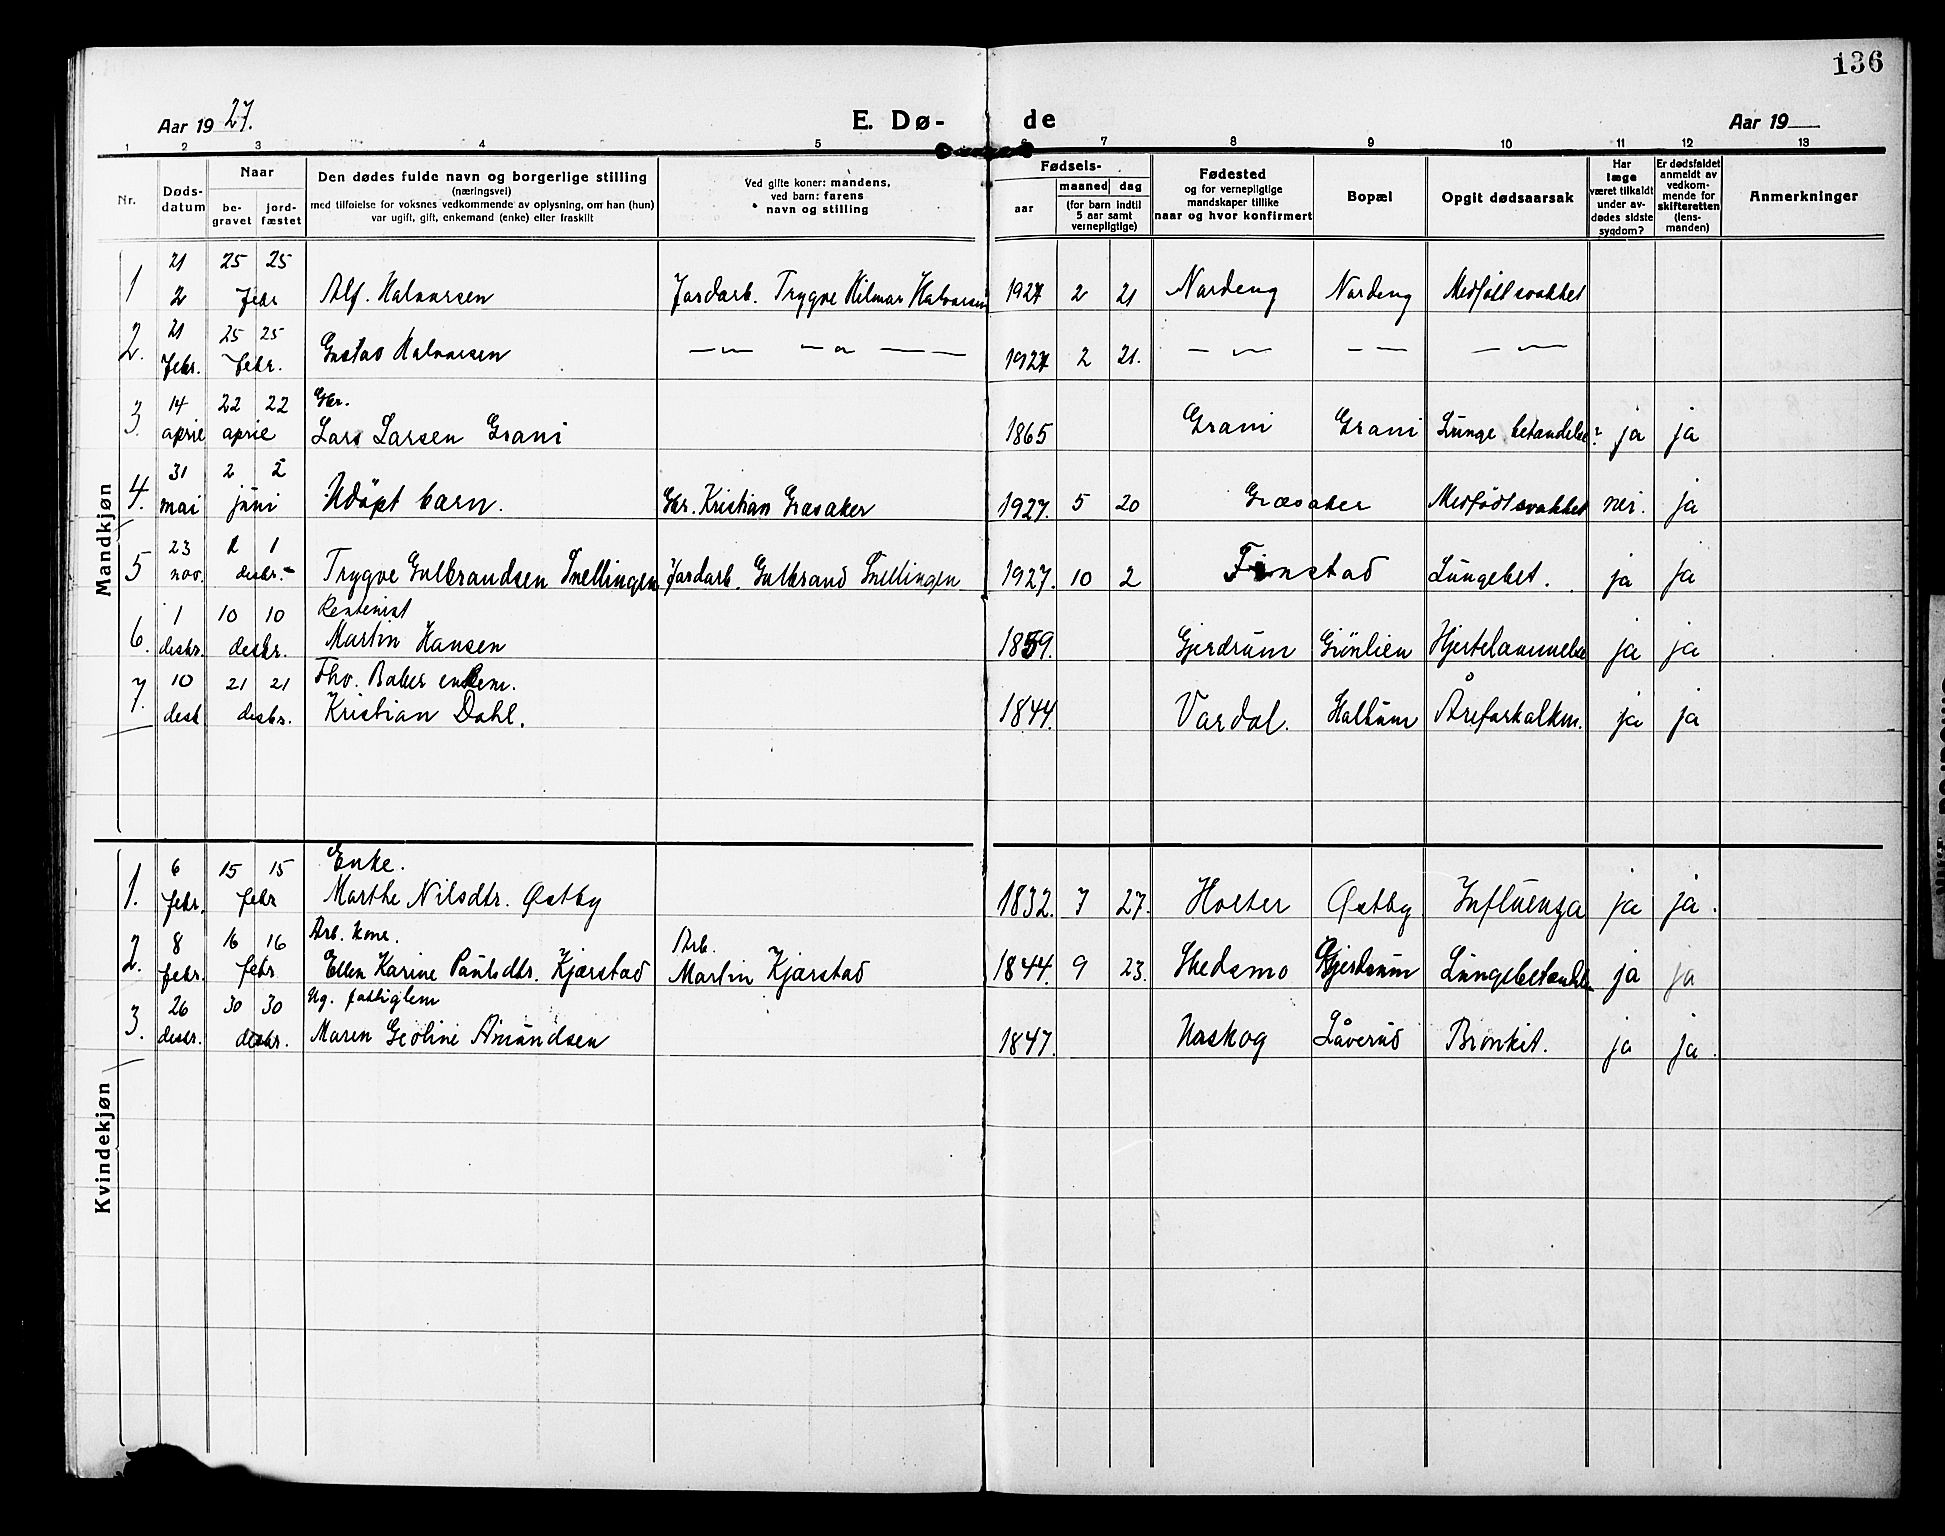 136
Aar 19 27.
E. Dø-
de
Aar 19
1 2 3 4 5 6 7 8 9 10 11 12 13
Nr.
Døds-
datum
Naar
be-
gravet
jord-
fæstet
Den dødes fulde navn og borgerlige stilling
(næringsvei)
med tilføielse for voksnes vedkommende av oplysning, om han (hun)
var ugift, gift, enkemand (enke) eller fraskilt
Ved gifte koner: mandens,
ved barn: farens
navn og stilling
Fødsels-
aar
maaned
dag
(for barn indtil
5 aar samt
vernepligtige)
Fødested
og for vernepligtige
mandskaper tillike
naar og hvor konfirmert
Bopæl
Opgit dødsaarsak
Har
læge
været tilkaldt
under av-
dødes sidste
sygdom?
Er dødsfaldet
anmeldt av
vedkom-
mende for
skifteretten
(lens-
manden)
Anmerkninger
Mandkjøn
21 25 25
1 2 Febr Alf. Halvorsen Jordarb. Trygve Hilmar Halvorsen 1927 2 21 Nordeng Nordeng Medfött svakhet
21 25 25
2. Febr. Febr. Gustav Halvorsen — „ — „ — — 1927 2 21. — „ — — — — „ —
14 22 22 Gbr.
3. april april Lars Larsen Grani 1865 Grani Grani Lunge betændelse? ja ja
31 2 2
4. mai juni Udöpt barn. Gbr. Kristian Græsaker 1927. 5 20 Græsaker Medfödt svakhet nei. ja
23 1 1
5 nov. desbr. Trygve Gulbrandsen Snellingen Jordarb. Gulbrand Snellingen 1927. 10 2 Finstad Lungebet. ja ja
1 10 10 Rentenist
6. desbr. desbr. Martin Hansen 1859. Gjerdrum Grønlien Hjertelammelse ja ja
10 21 21 Fhv. Baker enkem.
7. desb desbr. Kristian Dahl. 1844. Vardal. Holtum Åreforkalkn. ja ja
Kvindekjøn
6 15 15 Enke.
1. febr. febr Marthe Nilsdtr. Østby 1832. 7 27. Holter Østby Influenza ja ja.
8 16 16 Arb. kone. Arb.
2. febr. febr Ellen Karine Paulsdtr. Kjærstad Martin Kjærstad 1844. 9 23. Skedsmo Gjerdrum Lungebetændelse ja ja
26 30 30 Ug. fattiglem
3. desbr. desbr. Maren Geoline Amundsen 1847. Uaskog Låverud Bronkit. ja ja.